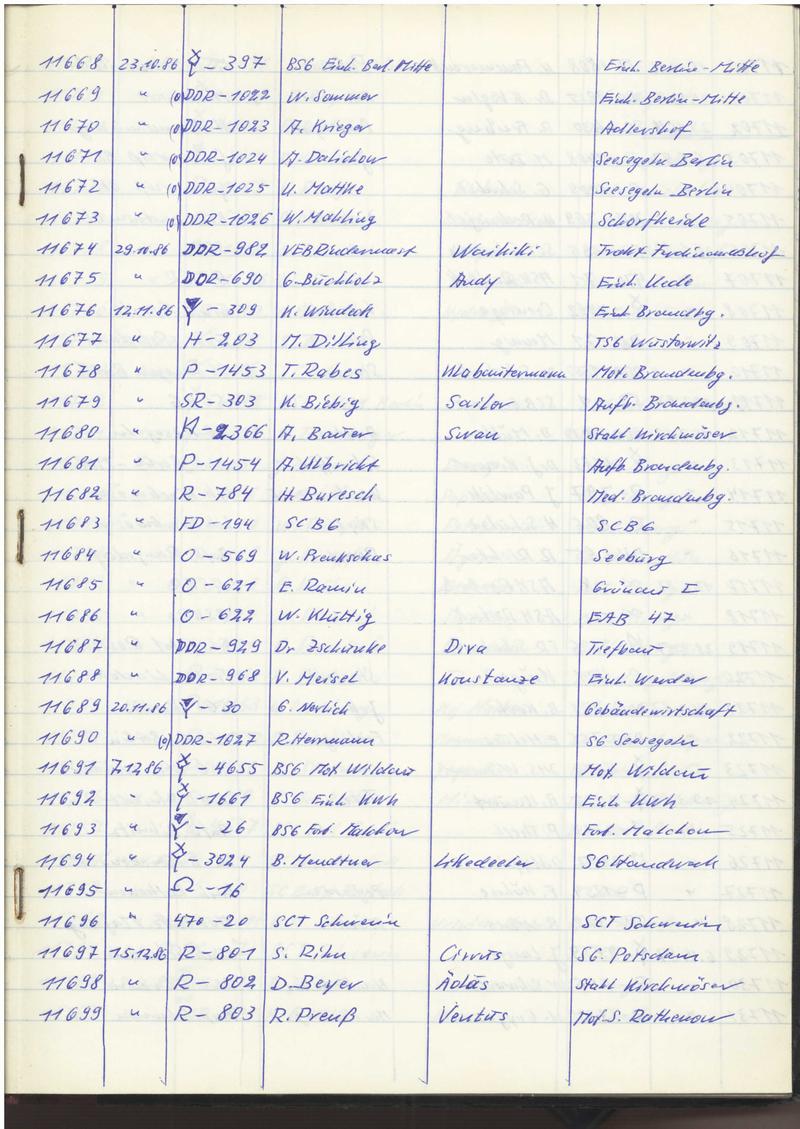 11668 23.10.86 - 397 BSG Einh. Berl. Mitte Einh. Berlin-Mitte
11669 " (o) DDR-1022 W. Sommer Einh. Berlin-Mitte
11670 " (o) DDR-1023 A. Krieger Adlershof
11671 " (o) DDR-1024 A. Dalichow Seesegeln Berlin
11672 " (o) DDR-1025 U. Mattke Seesegeln Berlin
11673 " (o) DDR-1026 W. Mahling Schorfheide
11674 29.10.86 DDR-982 VEB Rindermast Waikiki Trakt. Ferdinandshof
11675 " DDR-690 G. Buchholz Andy Einh. Uede
11676 12.11.86 - 309 K. Einh Brandbg.
11677 " H-203 M. Dilling TSG Wusterwitz
11678 " P-1453 T. Rabes Klabautermann Mot. Brandenbg.
11679 " SR-303 K. Biebig Sailor Aufb. Brandenbg.
11680 " K-2366 A. Bauer Swan Stahl Kirchmöser
11681 " P-1454 A. Ulbricht Aufb. Brandenbg.
11682 " R-784 H. Buresch Med. Brandenbg.
11683 " FD-194 SCBG SCBG
11684 " O-569 W. Preukschas Seeburg
11685 " O-621 E. Ramin Grünau I
11686 " O-622 W. Klüttig EAB 47
11687 " DDR-929 Dr. Zschunke Diva Tiefbau
11688 " DDR-968 V. Meisel Konstanze Einh. Werder
11689 20.11.86 - 30 G. Nerlich Gebäudewirtschaft
11690 " (o) DDR-1027 R. Herrmann SG Seesegeln
11691 7.12.86 - 4655 BSG Mot Wildau Mot. Wildau
11692 " -1661 BSG Einh KWh Einh KWh
11693 " - 26 BSG Fort. Malchow Fort. Malchow
11694 " - 3024 B. Mendtner Likedeeler SG Handwerk
11695 " Ω - 16
11696 " 470 - 20 SCT Schwerin SCT Schwerin
11697 15.12.86 R-801 S. Rihn Cirrus SG. Potsdam
11698 " R-802 D. Beyer Äolus Stahl Kirchmöser
11699 " R-803 R. Preuß Ventus Mot. S. Rathenow